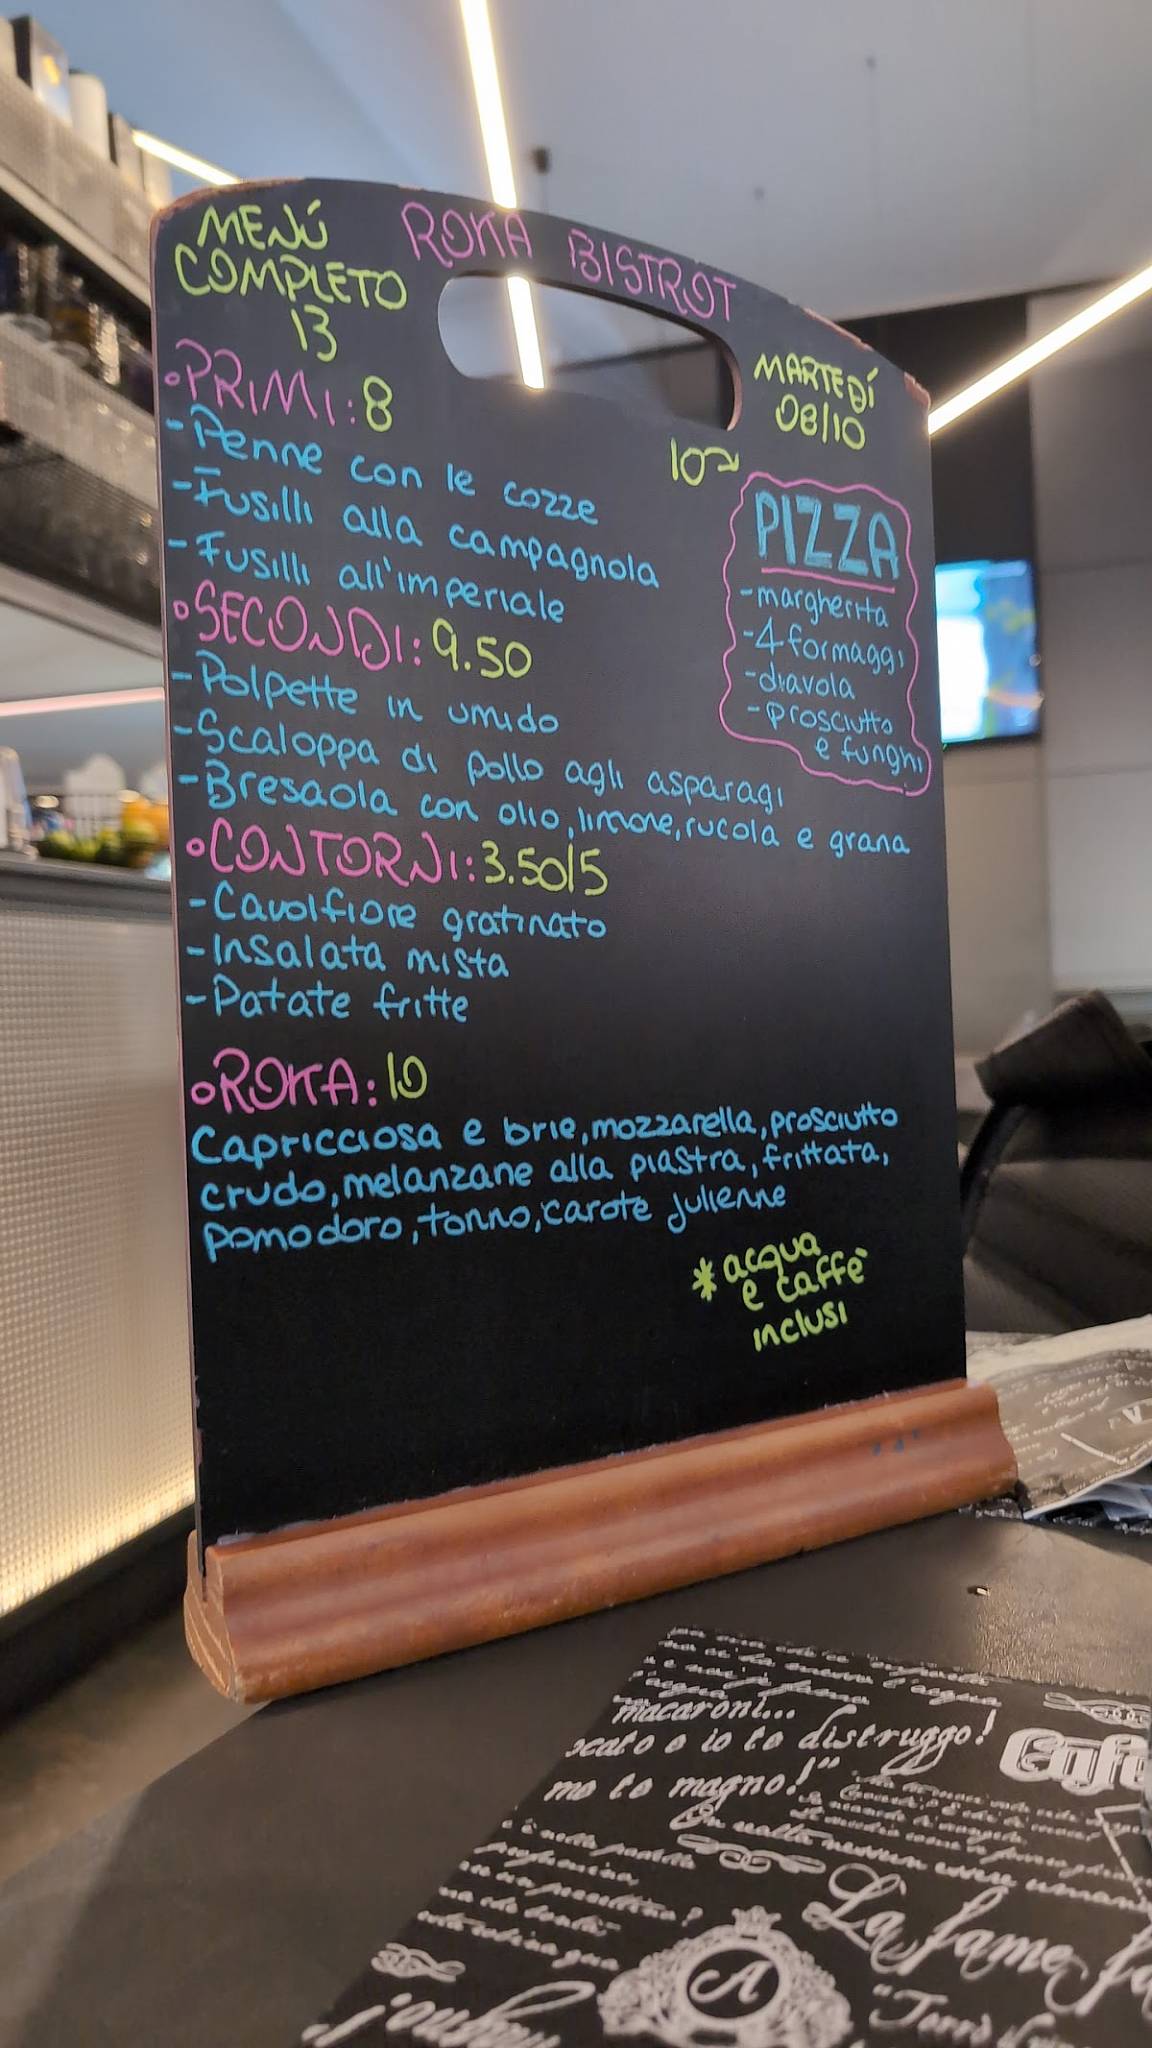 MENÚ
COMPLETO
13
ROKA BISTROT
MARTEDÍ
08/10
•PRIMI: 8
-Penne con le cozze
-Fusilli alla campagnola
-Fusilli all'imperiale
•SECONDI: 9.50
-Polpette in umido
-Scaloppa di pollo agli asparagi
-Bresaola con olio, limone, rucola e grana
•CONTORNI: 3.50/5
-Cavolfiore gratinato
-Insalata mista
-Patate fritte
•ROKA: 10
Capricciosa e brie, mozzarella, prosciutto
crudo, melanzane alla piastra, frittata,
pomodoro, tonno, carote julienne
10
PIZZA
-margherita
-4 formaggi
-diavola
-prosciutto
e funghi
*acqua
e caffè
inclusi
macaroni...
io te distruggo!
me te magno!"
La fame
A